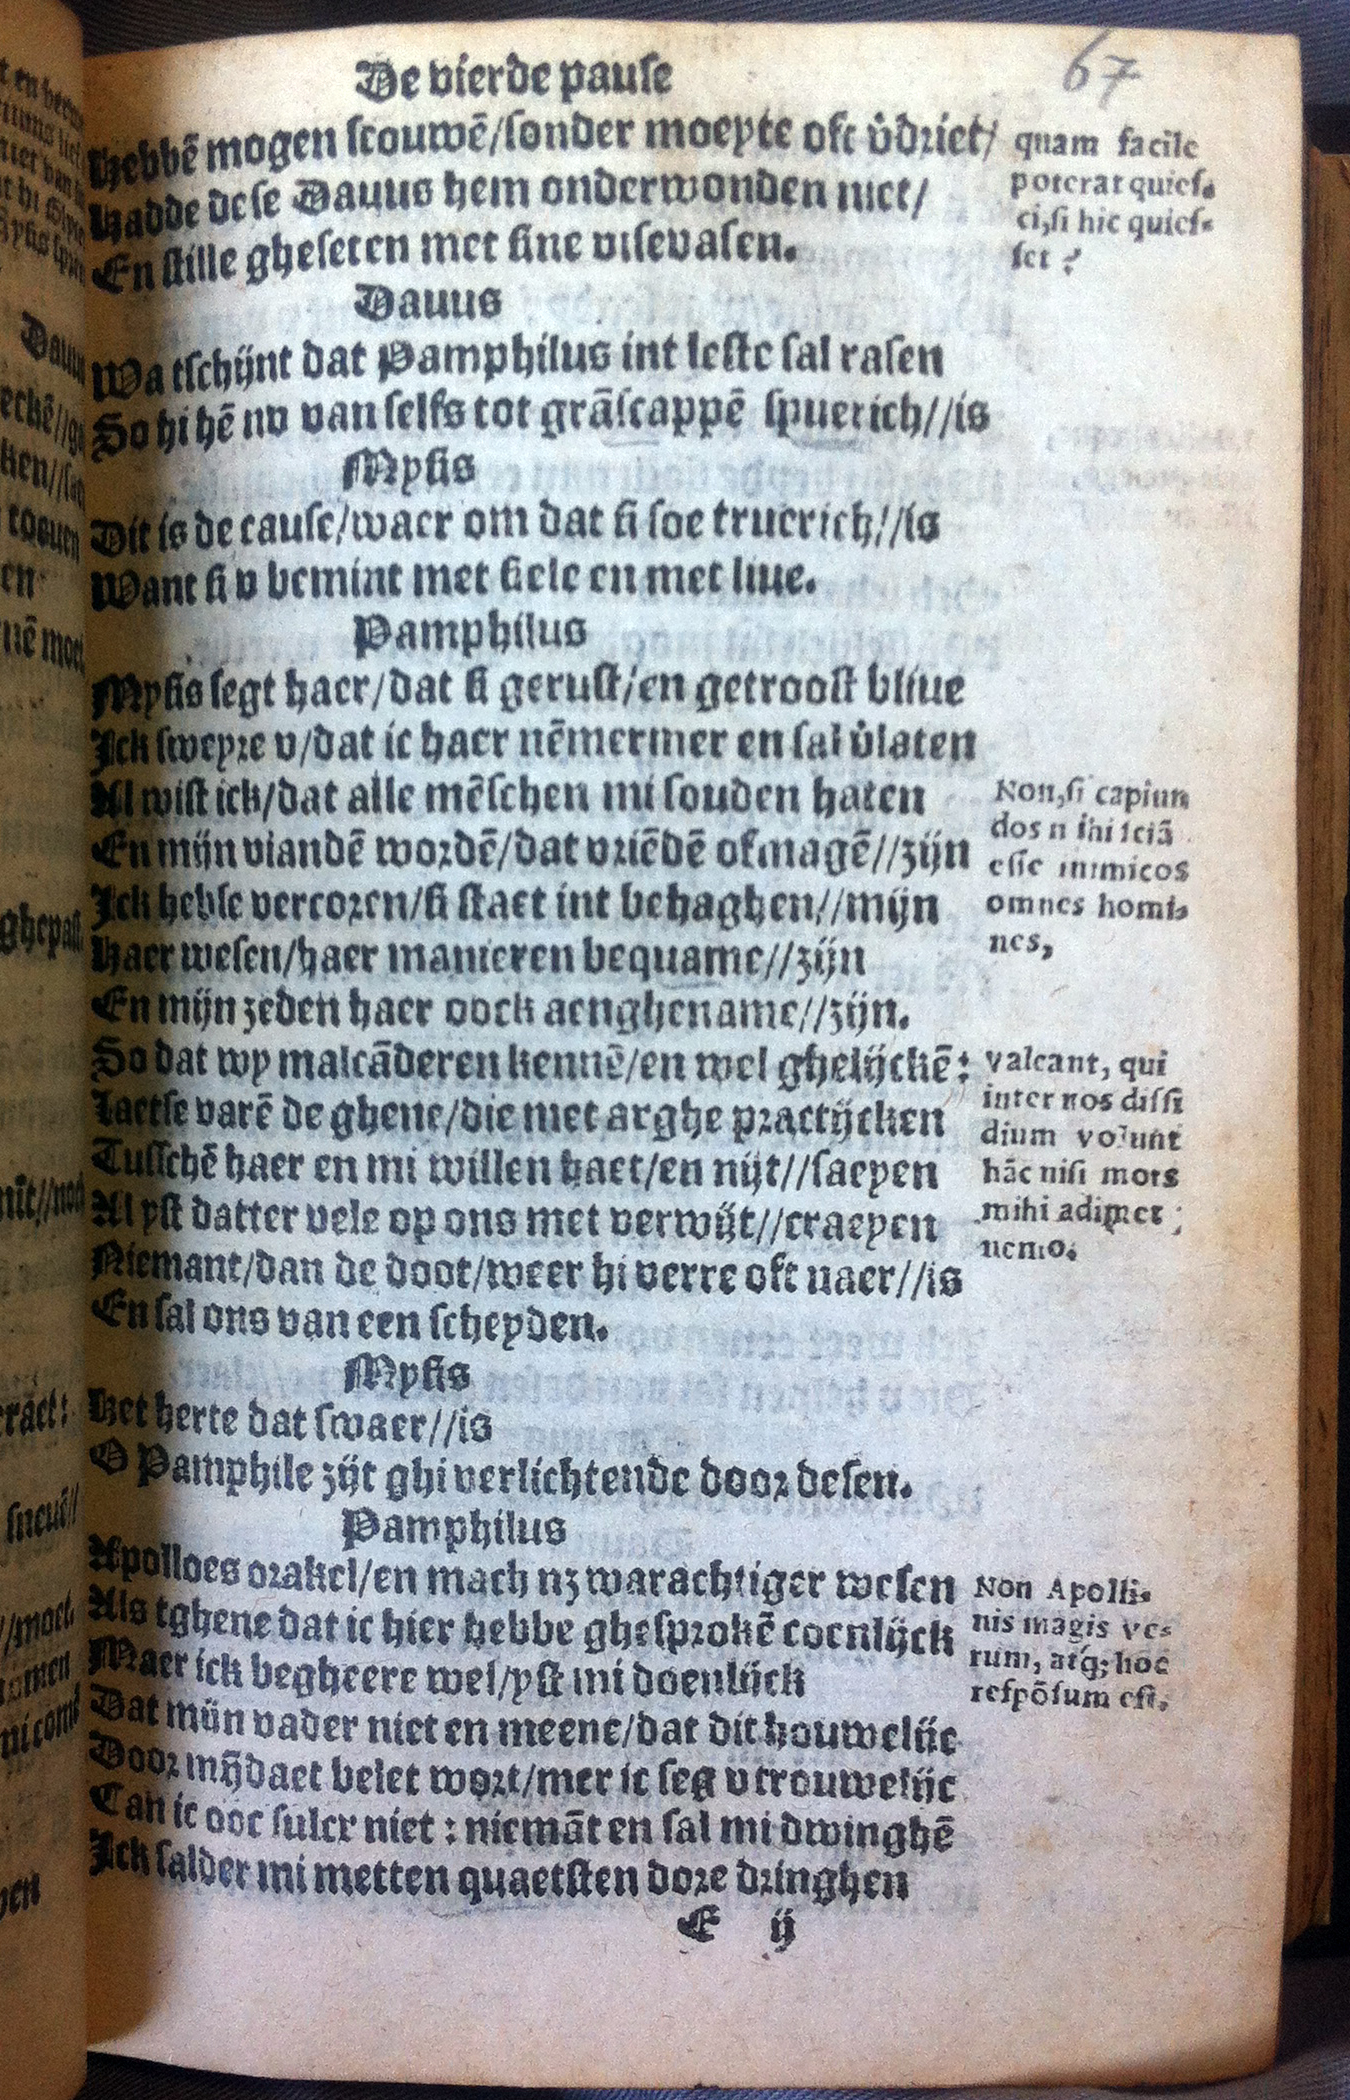 67
De vierde pause
Hebbē mogen scouwē/sonder moeyte oft v̄driet/
Hadde dese Dauus hem onderwonden niet/
En stille gheseten met sine visevasen.
quam facile
poterat quies-
ci, si hic quies-
set ?
Dauus
Wa tschijnt dat Pamphilus int leste sal rasen
So hi hē nv van selfs tot grāscappē spuerich//is
Mysis
Dit is de cause/waer om dat si soe truerich//is
Want si v bemint met siele en met liue.
Pamphilus
Mysis segt haer/dat si gerust/en getroost bliue
Ick sweyre v/dat ic haer nēmermer en sal v̄laten
Al wist ick/dat alle mēschen mi souden haten
En mijn viandē wordē/dat vriēdē ofmagē//zijn
Ick hebse vercoren/si staet int behaghen//mijn
Haer wesen/haer manieren bequame//zijn
En mijn zeden haer oock aenghename//zijn.
Non, si capiun
dos mihi sciā
esse inimicos
omnes homi-
nes,
So dat wy malcāderen kennē/en wel ghelijckē:
Laetse varē de ghene/die met arghe practijcken
Tusschē haer en mi willen haet/en nijt//saeyen
Al yst datter vele op ons met verwijt//craeyen
Niemant/dan de doot/weer hi verre oft naer//is
En sal ons van een scheyden.
Valeant, qui
inter nos dissi
dium volunt
hāc nisi mors
mihi adimet
nemo.
Mysis
Het herte dat swaer//is
O Pamphile zijt ghi verlichtende door desen.
Pamphilus
Apolloes orakel/en mach nz warachtiger wesen
Als tghene dat ic hier hebbe ghesprokē coenlijck
Maer ick begheere wel/yst mi doenlijck
Dat mijn vader niet en meene/dat dit houwelijc
Door mijdaet belet wort/mer ic seg v trouwelijc
Can ic ooc sulcx niet : niemāt en sal mi dwinghē
Ick salder mi metten quaetsten dore dringhen
Non Apolli-
nis magis ve-
rum, atq; hoc
respōsum est.
E ij